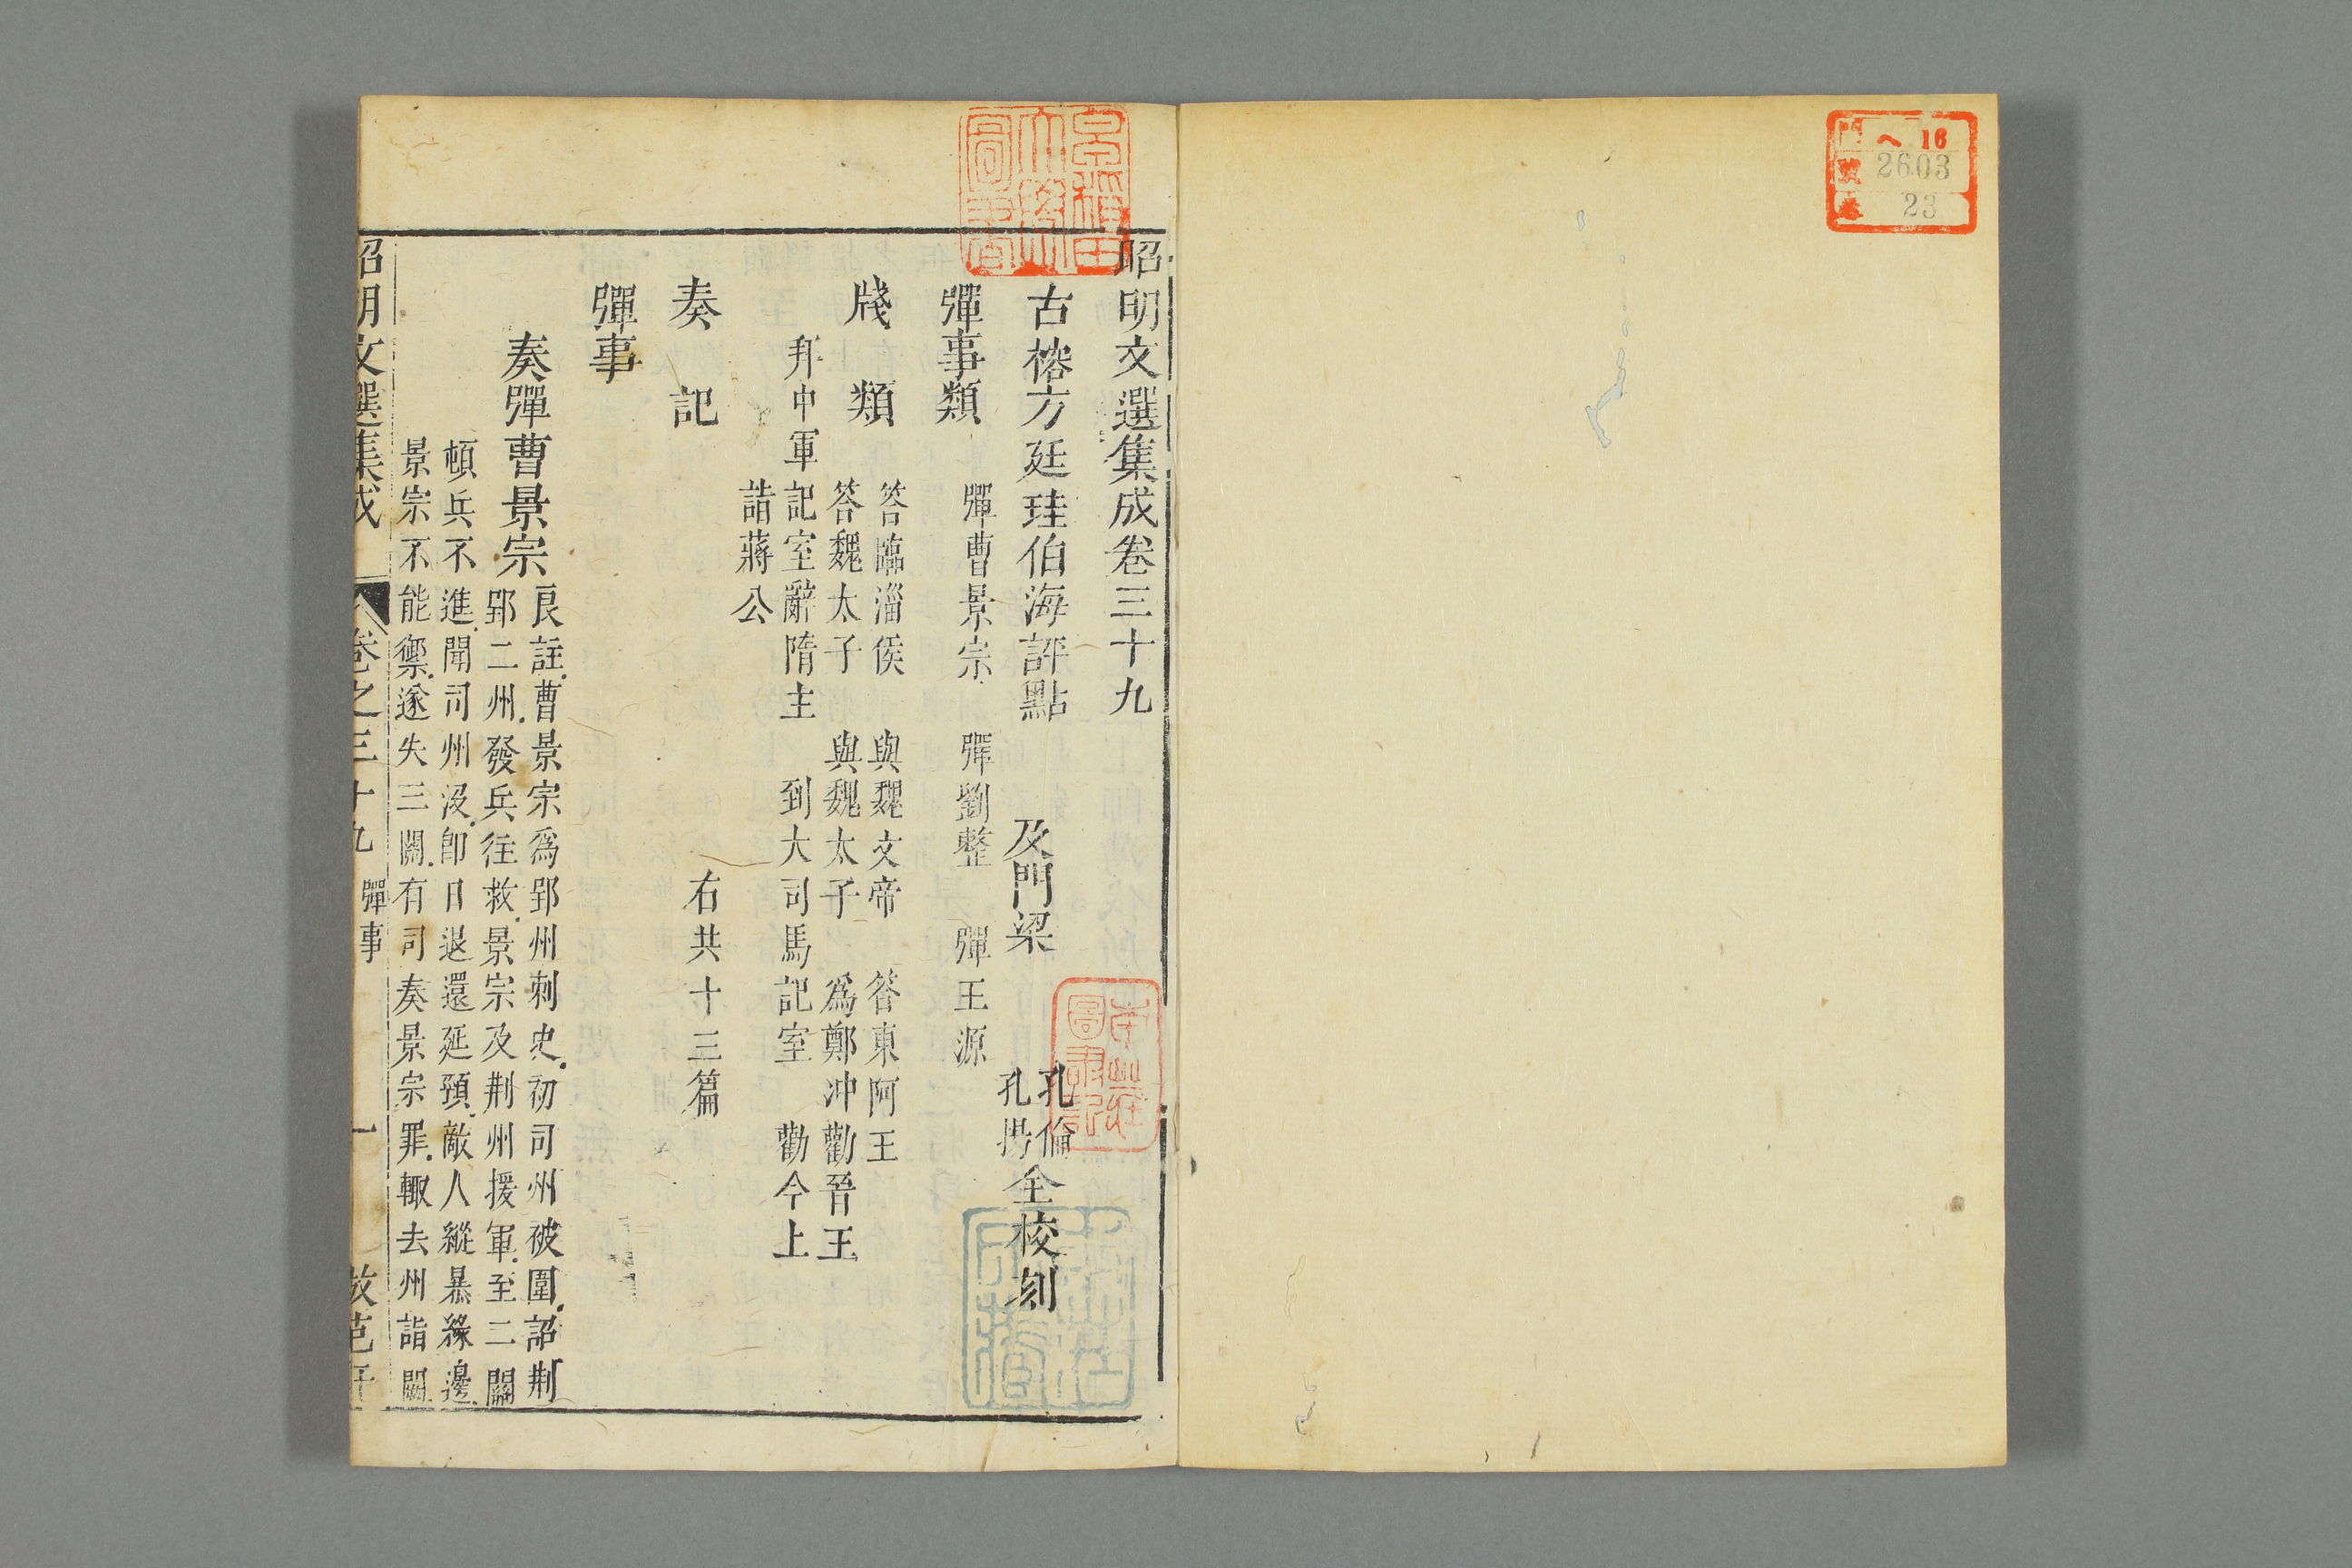 へ 16
2603
23
昭明文選集成卷三十九
古榕方廷珪伯海評點 及門梁
孔倫
孔㧑
仝校刻
彈事類 彈曹景宗 彈劉整 彈王源
牋類 答臨淄侯 與魏文帝 答東阿王
答魏太子 與魏太子 爲鄭冲勸晉王
拜中軍記室辭隋主 到大司馬記室 勸今上
詣蔣公
奏記 右共十三篇
彈事
奏彈曹景宗
良註曹景宗爲郢州刺史初司州被圍詔荆
郢二州發兵往救景宗及荆州援軍至二關
頓兵不進聞司州沒卽日退還延頸敵人縱暴緣邊
景宗不能禦遂失三關有司奏景宗罪輙去州詣闕
昭明文選集成 卷之三十九 彈事 一